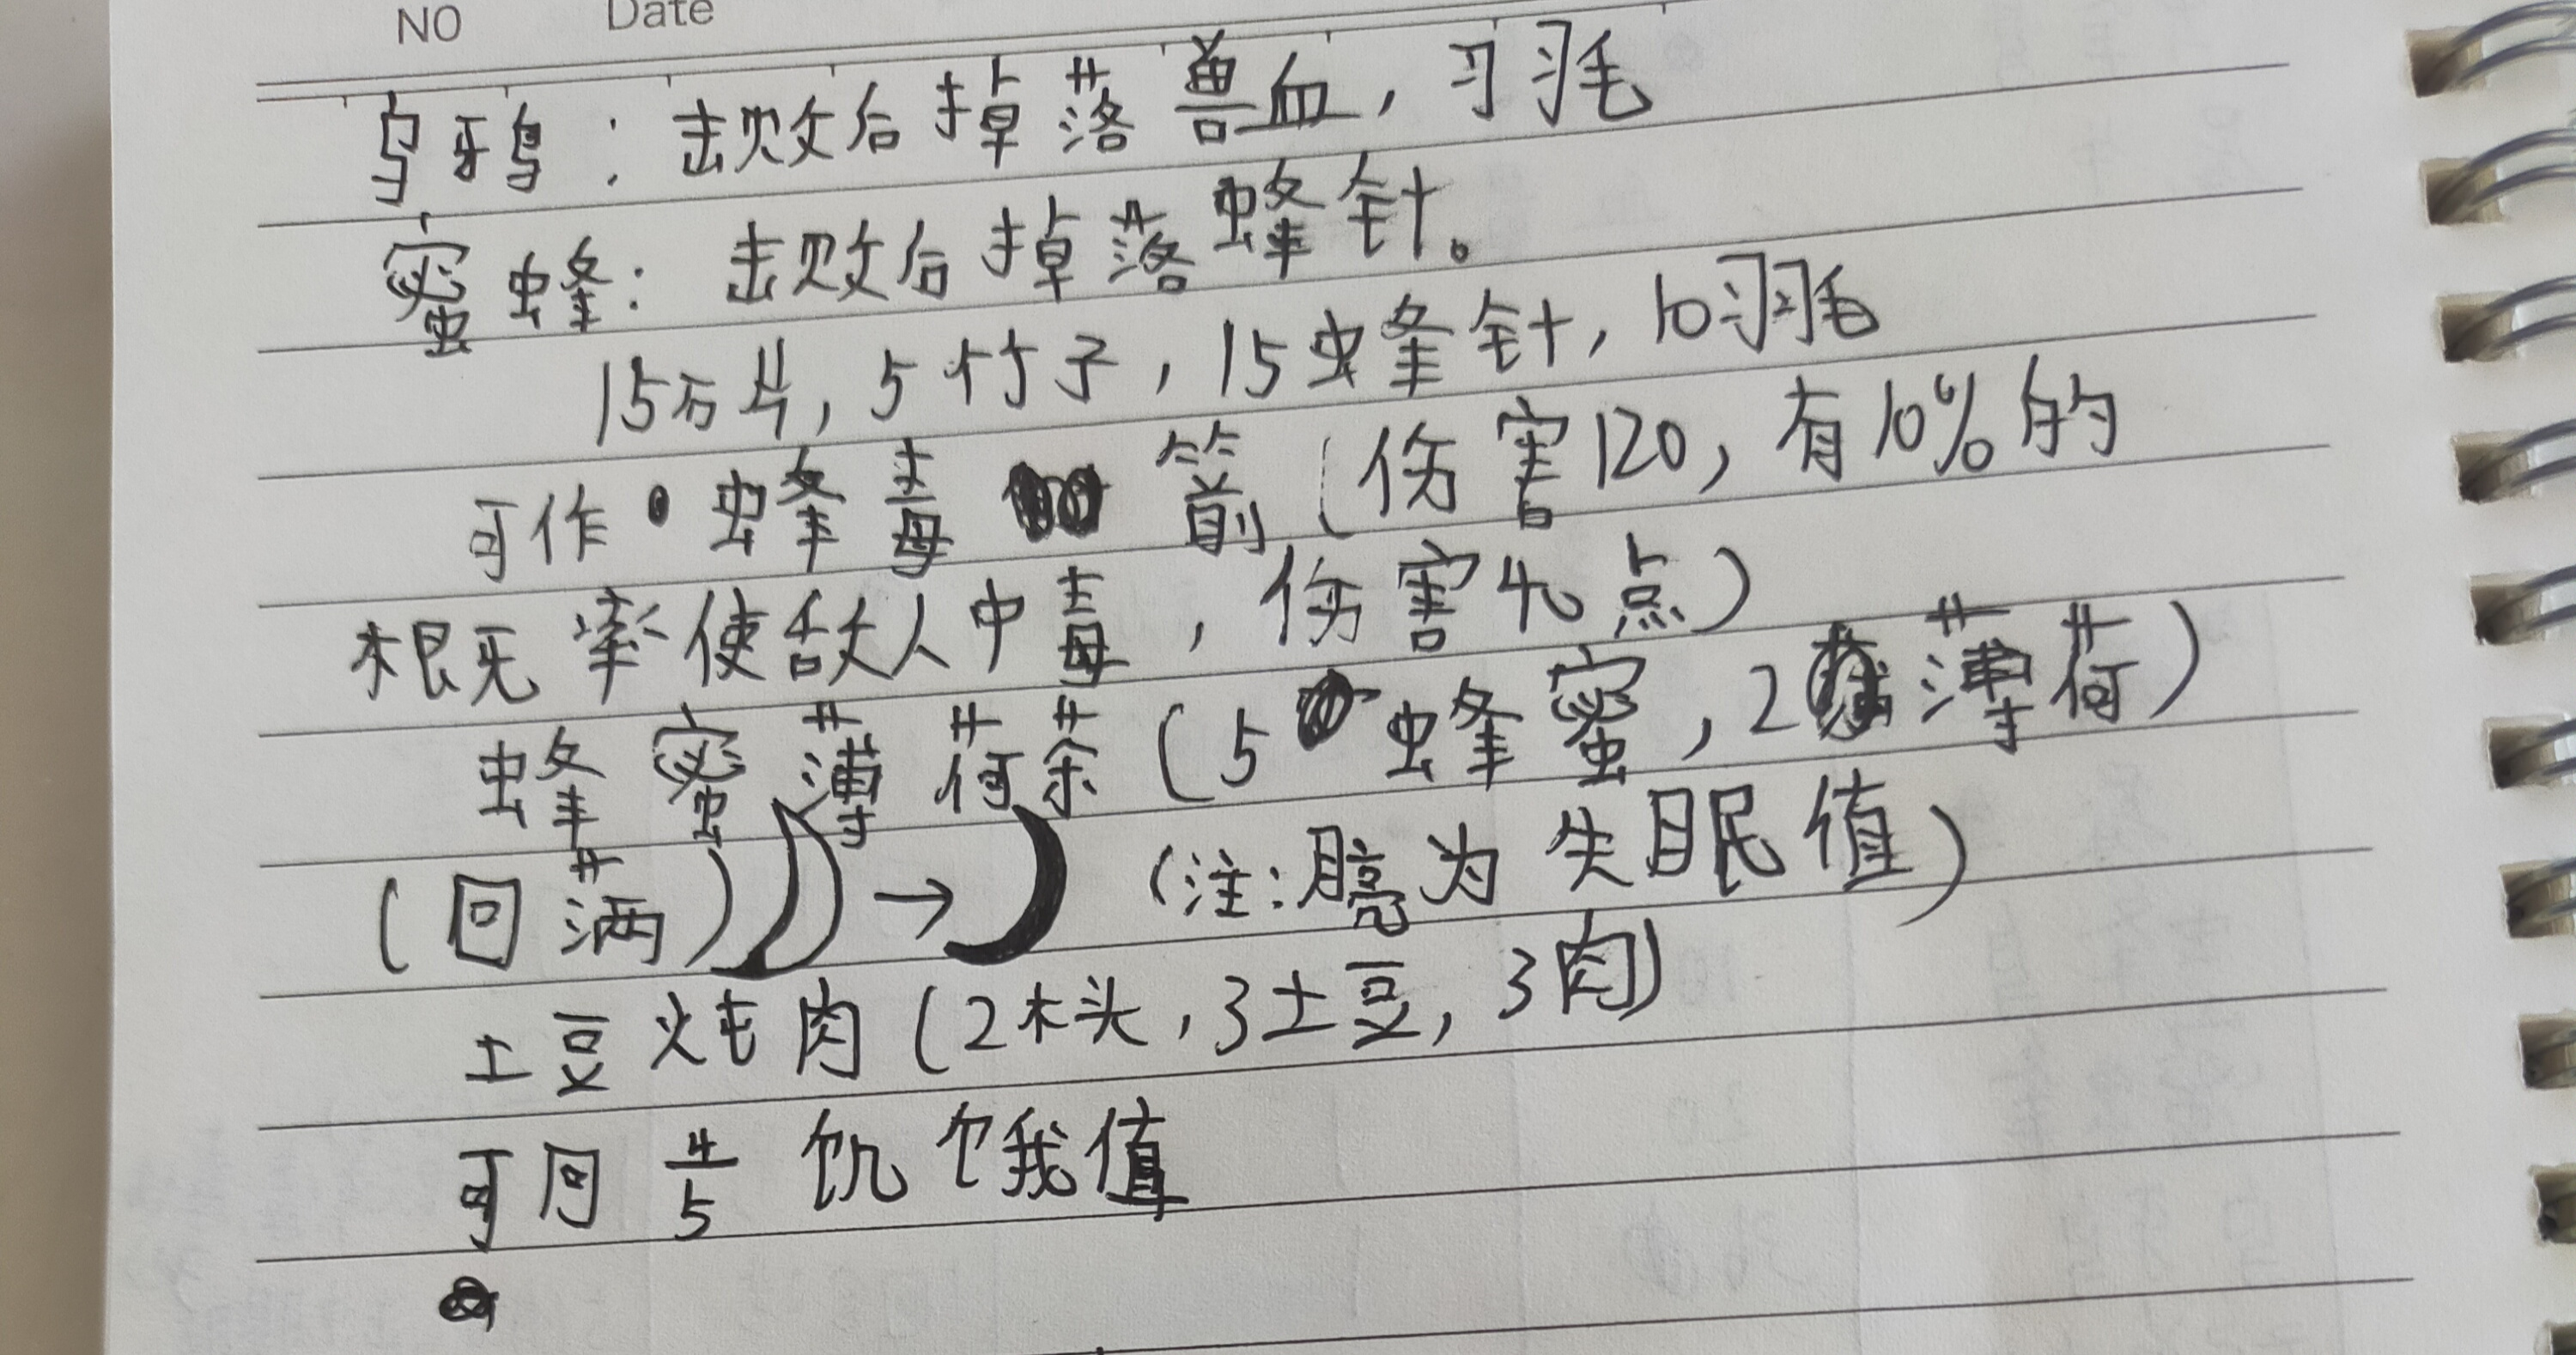 NO Date
乌鸦：击败后掉落兽血，羽毛
蜜蜂：击败后掉落蜂针。
15石片，5竹子，15蜂针，10羽毛
可作蜂毒箭（伤害120，有10%的
概率使敌人中毒，伤害40点）
蜂蜜薄荷茶（5蜂蜜，2薄荷）
（回满）→（注：亮为失眠值）
土豆炖肉（2木头，3土豆，3肉）
可回4/5饥饿值